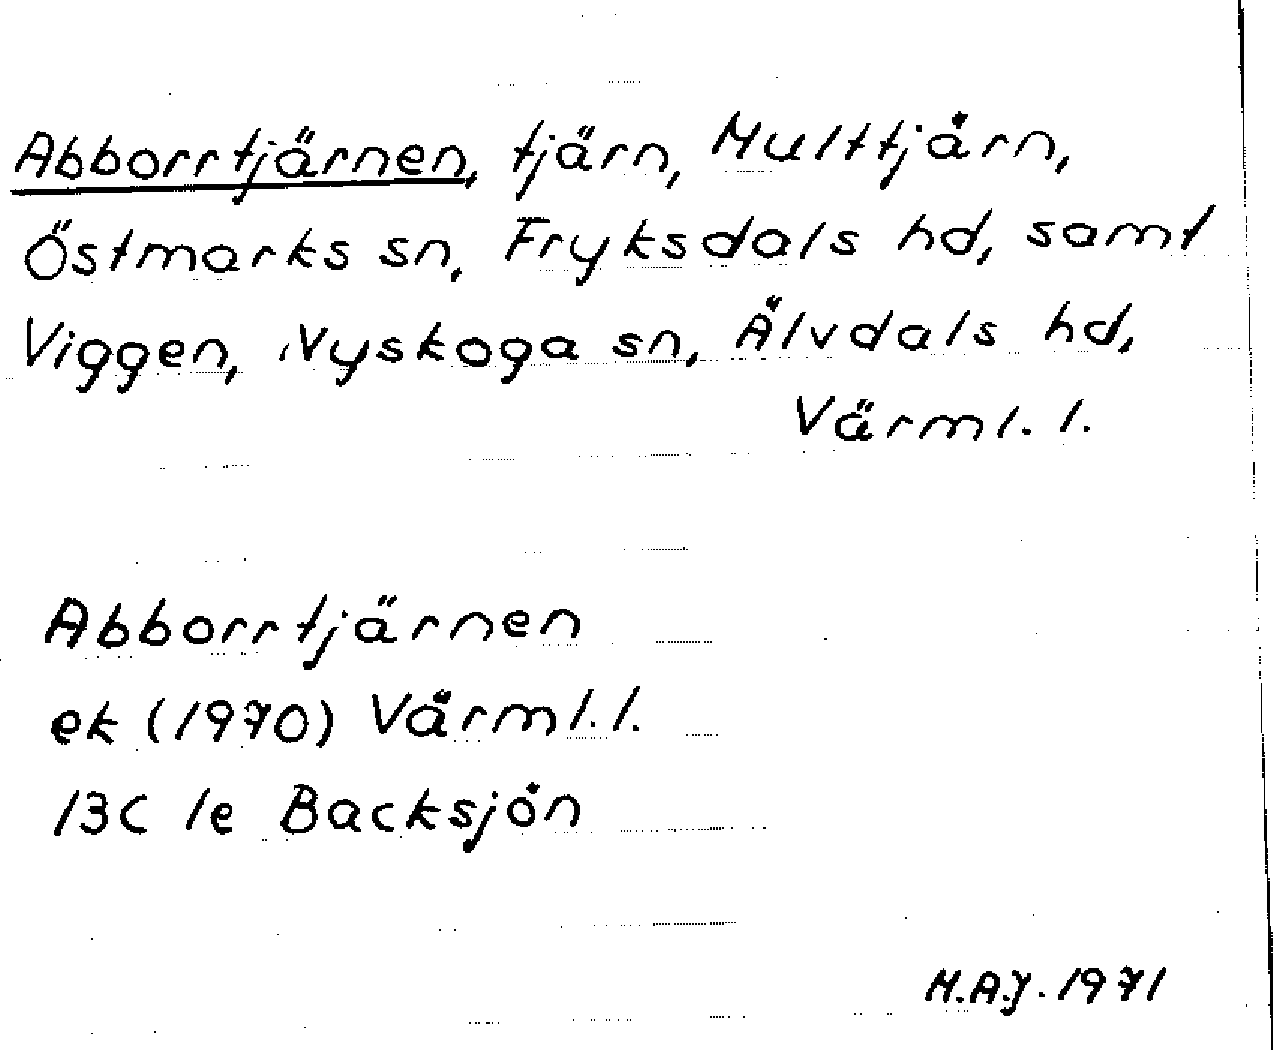 Abborrtjärnen, tjärn, Multtjärn,
Östmarks sn, Fryksdals hd, samt
Viggen, Nyskoga sn, Älvdals hd,
Värml. l.
Abborrtjärnen
ek (1970) Värml. l.
13C 1e Backsjön
M.A.J. 1971